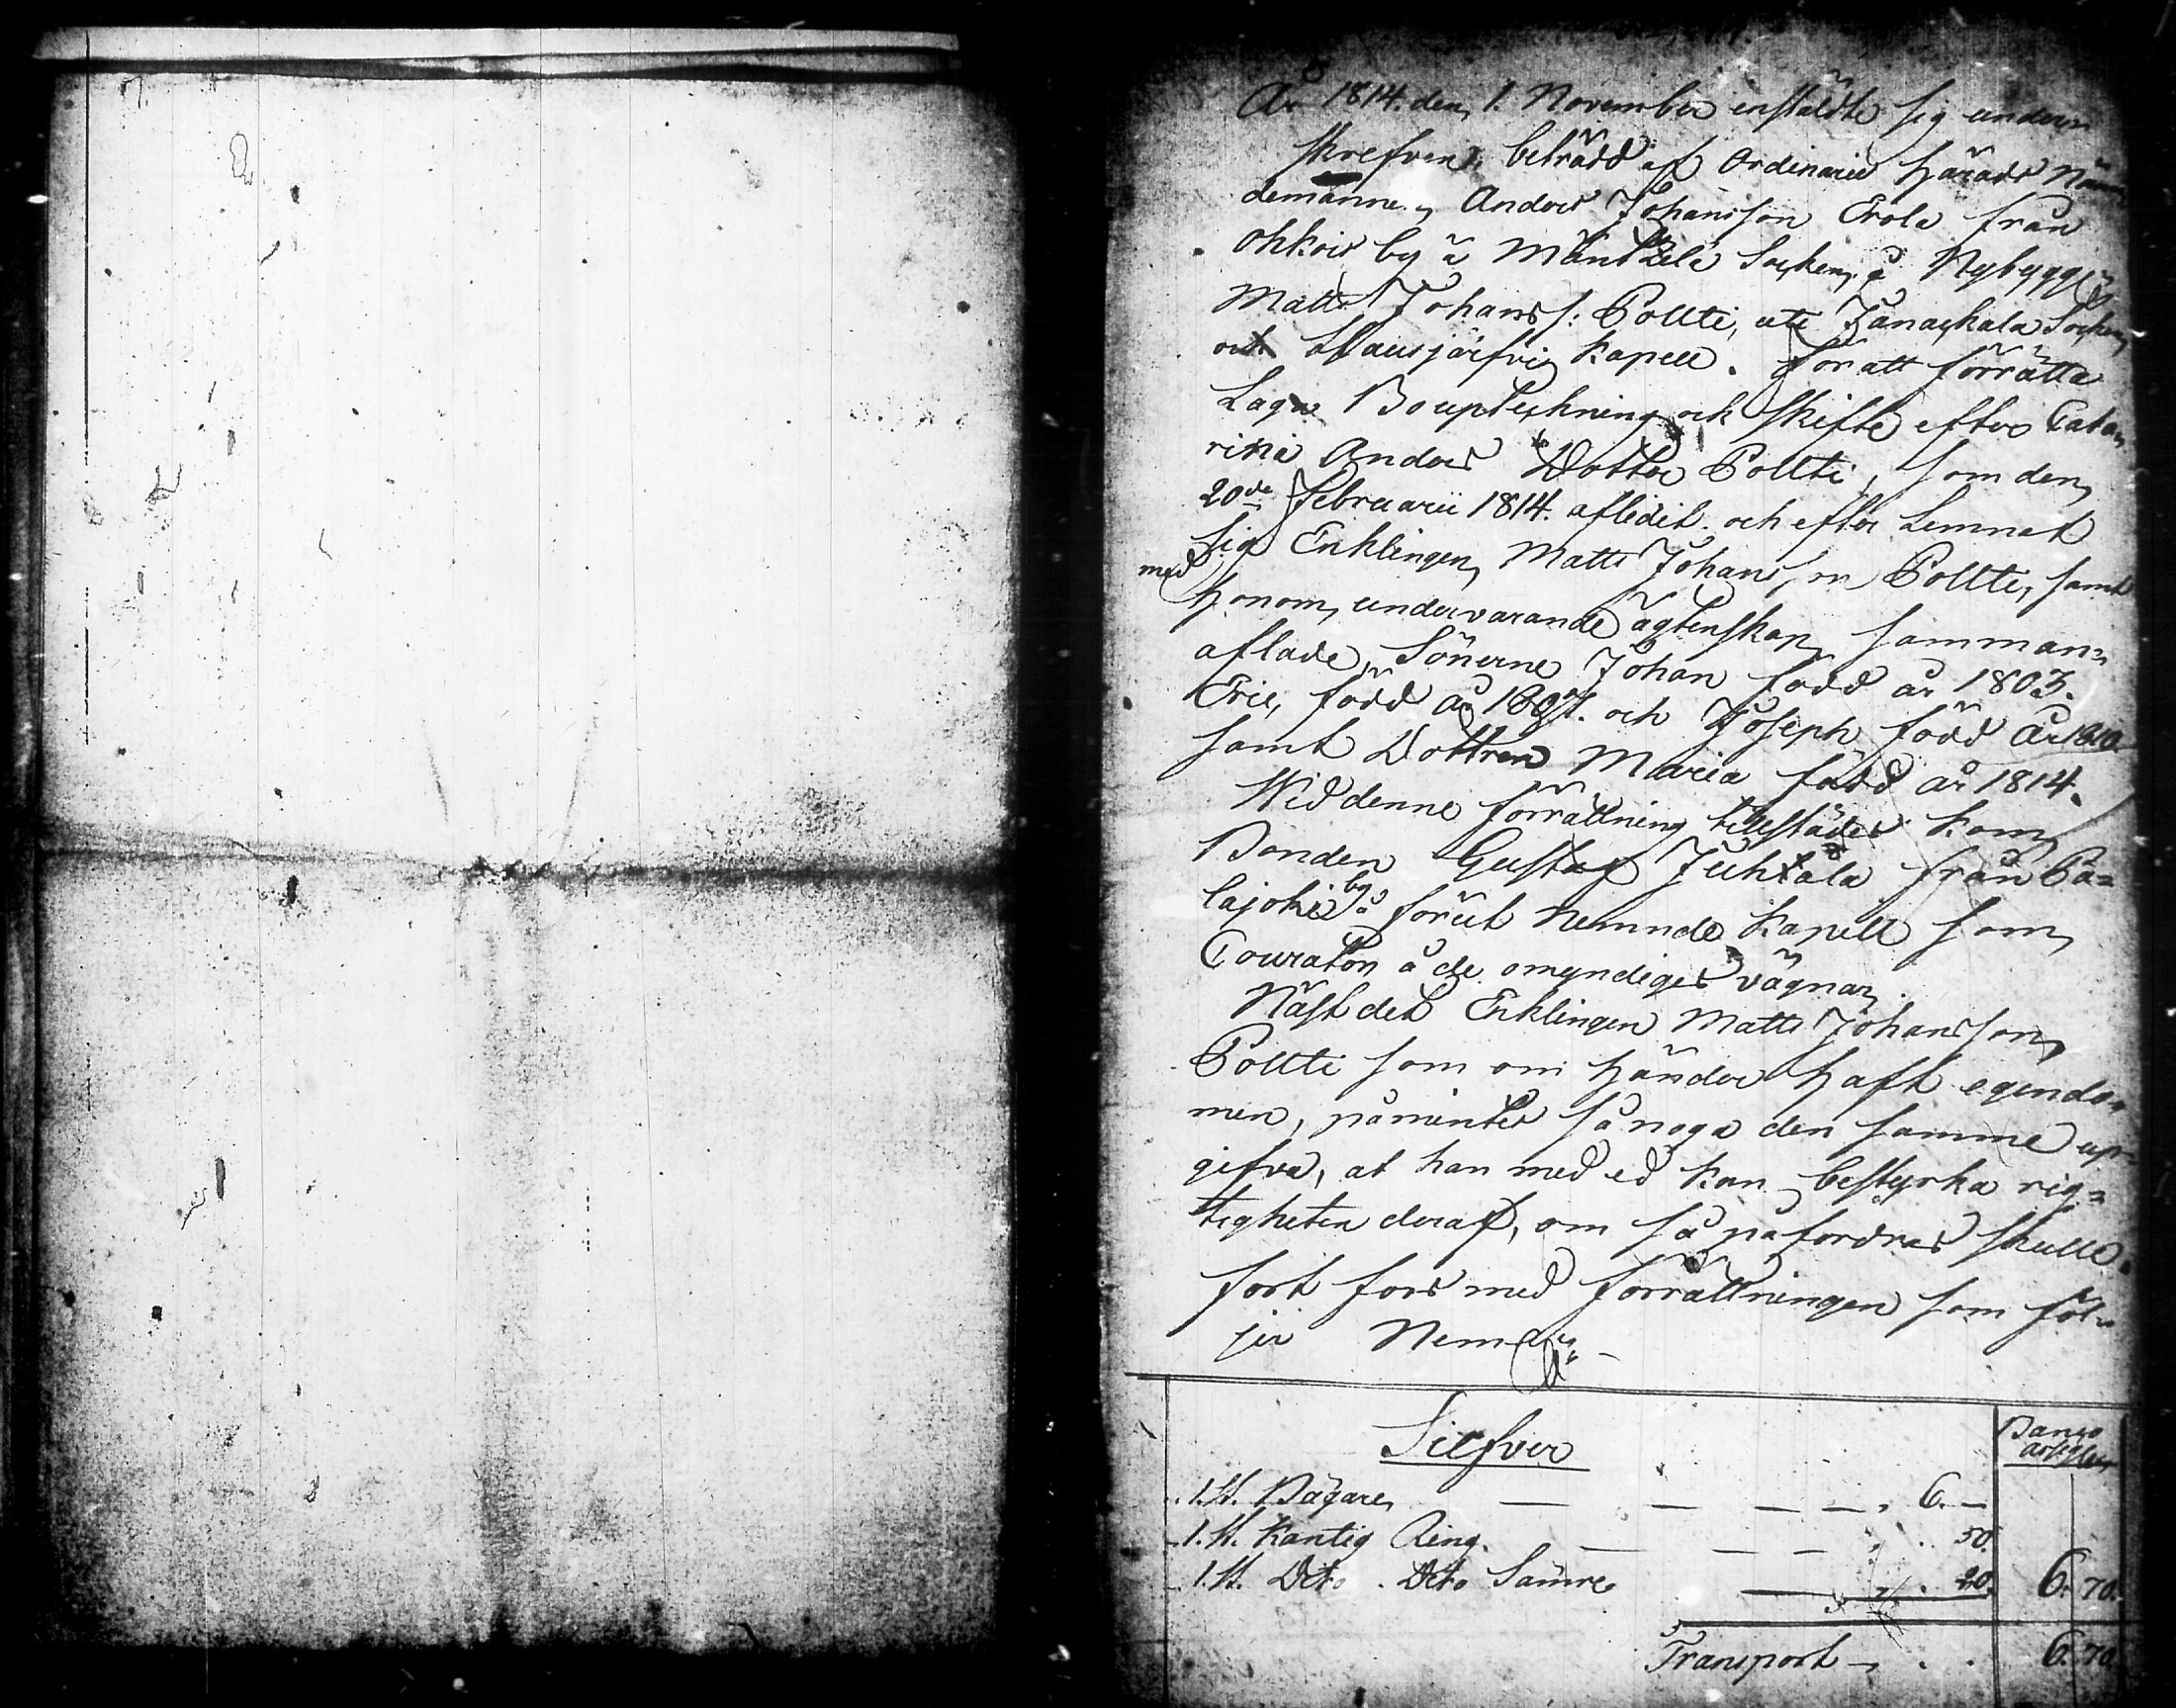 År 1814. den 1. November enstäldte sig under-
skrefven, biträdd af Ordinarie Härads Näm-
demanne, Anders Johansson Erola från
Ohkois by i Mäntzälä Socken, å Nybygge
Matts Johans s: Pollti, uti Janackala Socken,
och Hausjärfvi Kapell. för att förrätta
Laga Boupteckning och skifte efter Cata-
rina Anders Dotter Pollti, som den
20de Februarii 1814. aflidit. och efter Lemnat
sig Enklingen Matts Johansson Pollti, samt
med
honom, undervarande ägtenskap samman-
aflade, Sönerne Johan född år 1803.
Eric, född år 1807. och Joseph, född år 1810.
samt Dottren Maria född år 1814.
Wid denne förrättning tillstädes kom
Bonden Gustaf Juhtala från Pa=
lajoki by i förut nemnde Kapell som
Courator å de omyndiges vägnar.
Näst det Enklingen Matts Johansson
Pollti som om händer haft egendo-
men, påmintes så noga den samme up-
gifva, at han med ed kan bestyrka rig=
tigheten deraf, om så påfordras skulle.
fort fors med förrättningen som föl-
jer Nemn:
Silfver
Banco
1. st. Bägare 6. —
1. st. Kantig Ring. 50.
1. st. Dito. Dito Sämre 20. 6. 70.
Transport 6. 70.